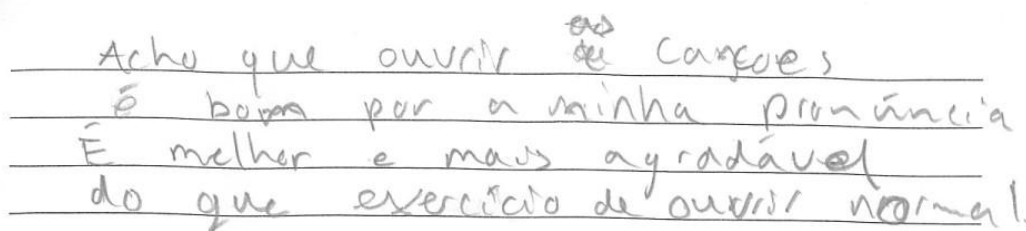 Acho que ouvrir as canções
é bom por a minha pronúncia
É melhor e mais agradável
do que exercício de ouvrir normal.